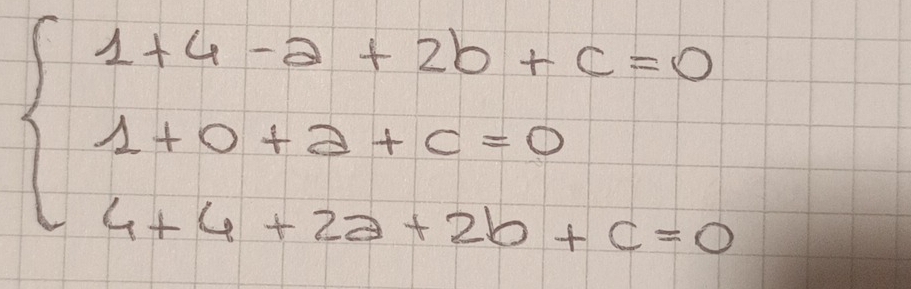 1+4-a+2b+c=0
1+0+a+c=0
4+4+2a+2b+c=0